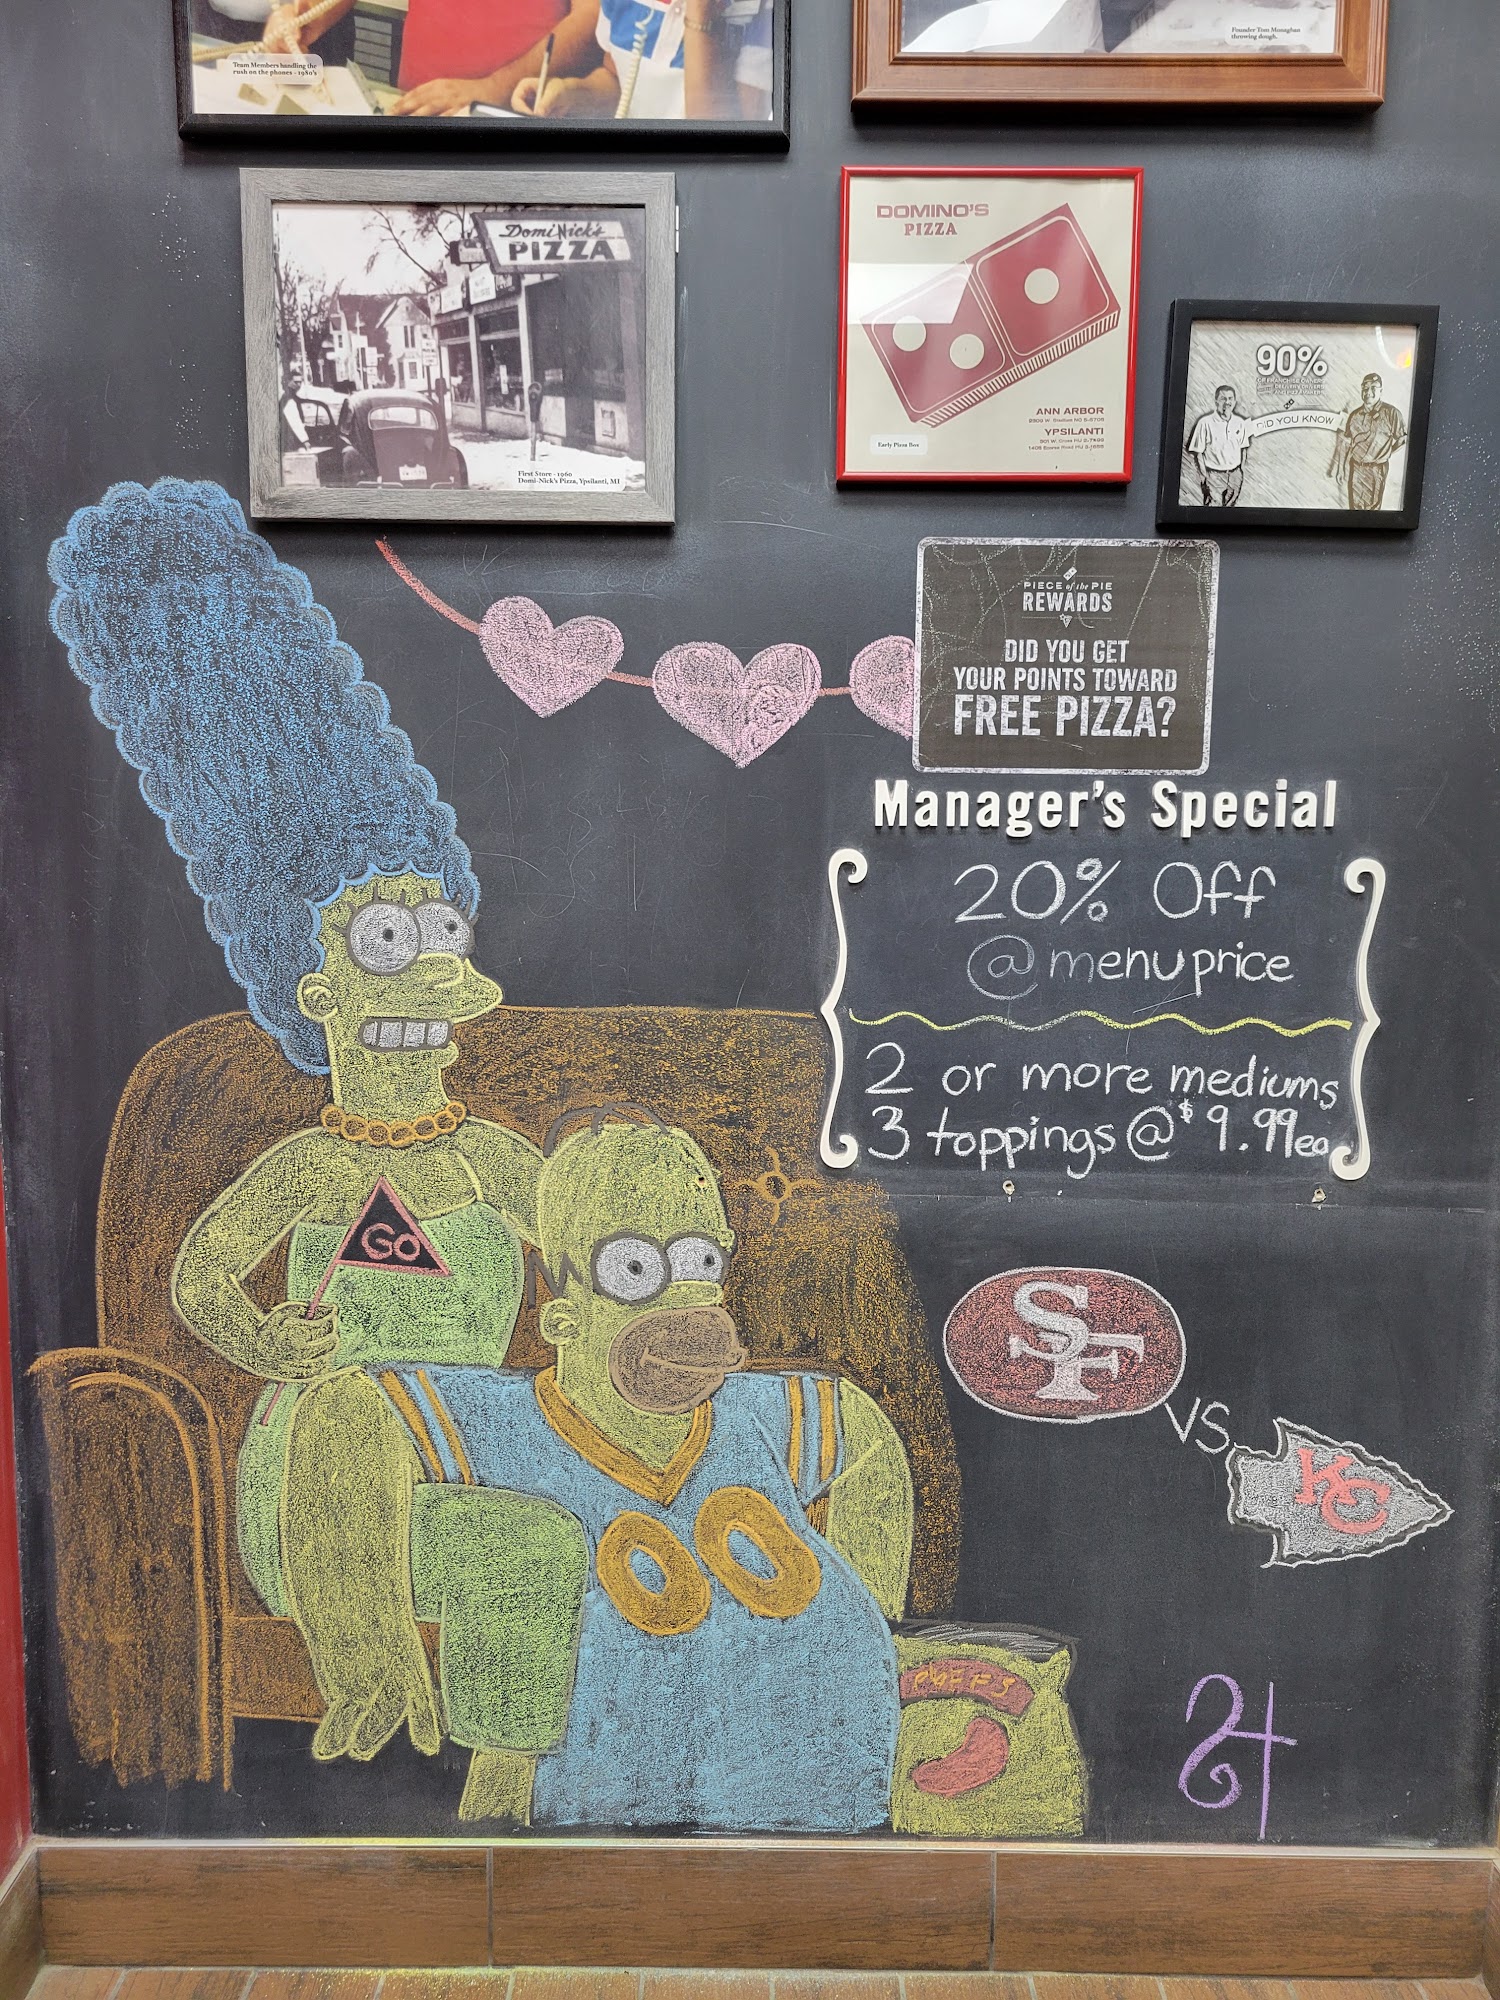 Team Members handling the
rush on the phones - 1980's
Founder Tom Monaghan
throwing dough.
Domi Nick's
PIZZA
First Store - 1960
Domi-Nick's Pizza, Ypsilanti, MI
DOMINO'S
PIZZA
ANN ARBOR
YPSILANTI
Early Pizza Box
90%
OF FRANCHISE OWNERS
DID YOU KNOW
PIECE of the PIE
REWARDS
DID YOU GET
YOUR POINTS TOWARD
FREE PIZZA?
Manager's Special
20% Off
@ menu price
2 or more mediums
3 toppings @ $9.99ea
GO
SF
VS.
KC
00